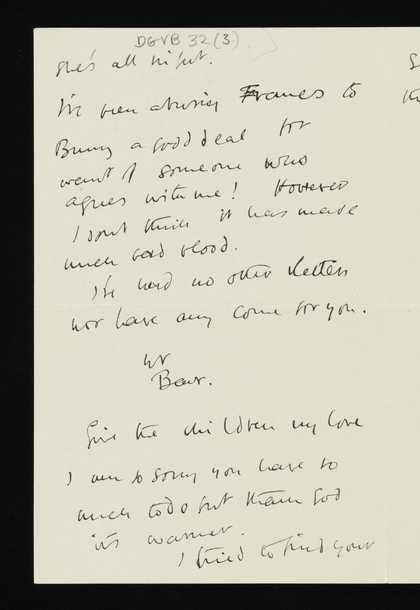 DGVB 32 (3)
she's all right.
I've been abusing Frances to
Bunny a good deal for
want of someone who
agrees with me! However
I don't think it has made
much bad blood.
I've had no other letters
nor have any come for you.
yr
Bear.
Give the children my love
I am so sorry you have so
much to do but thank God
it's warmer.
I tried to find your